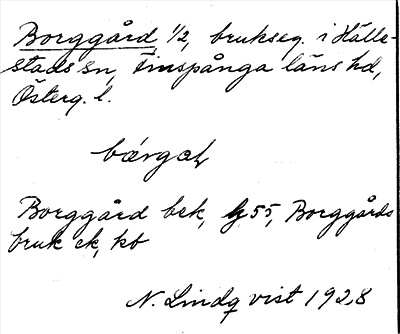 Borggård 1/2, brukseg. i Hälle-
stads sn, Finspånga läns hd,
Österg. l.
Borggård bek, G 55, Borggårds
bruk ek, kb
N. Lindqvist 1928